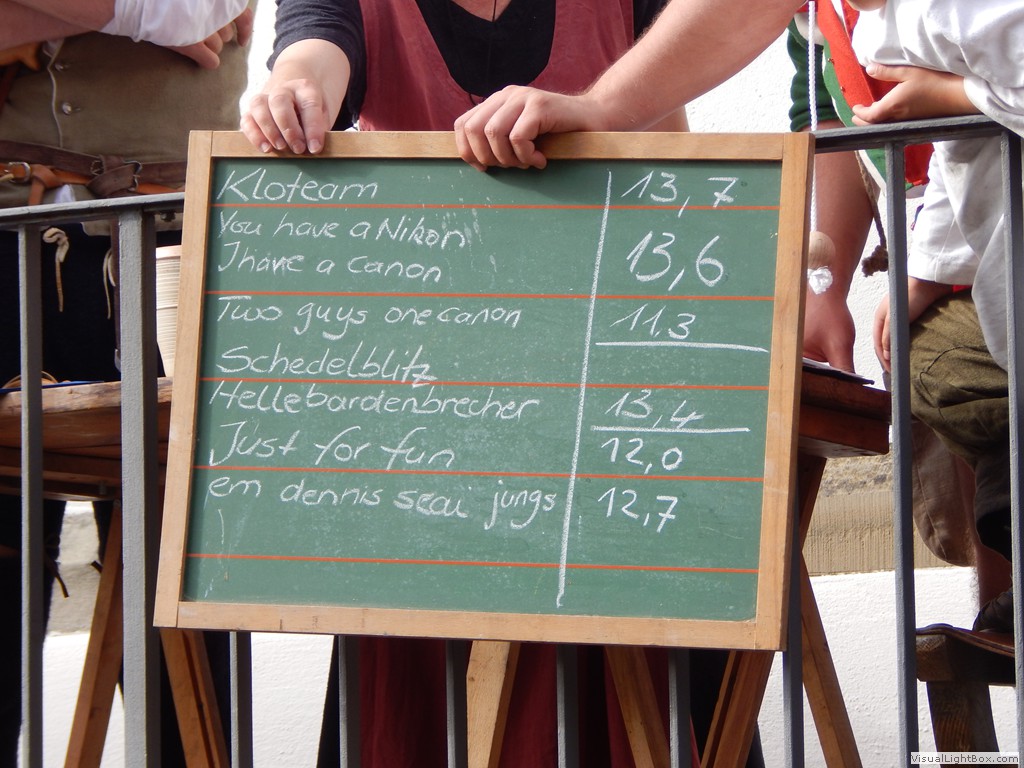 Kloteam 13,7
You have a Nikon
I have a canon 13,6
Two guys one canon 11,3
Schedelblitz
Hellebardenbrecher 13,4
Just for fun 12,0
em dennis seai jungs 12,7
VisualLightBox.com